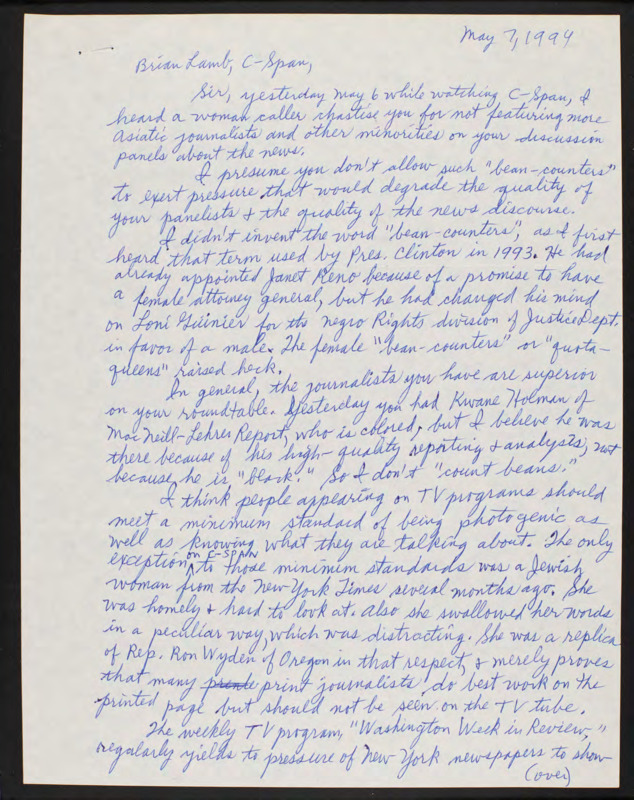 May 7, 1994
Brian Lamb, C-Span,
Sir, yesterday May 6 while watching C-Span, I
heard a woman caller chastise you for not featuring more
Asiatic journalists and other minorities on your discussion
panels about the news.
I presume you don't allow such "bean-counters"
to exert pressure that would degrade the quality of
your panelists & the quality of the news discourse.
I didn't invent the word "bean-counters", as I first
heard that term used by Pres. Clinton in 1993. He had
already appointed Janet Reno because of a promise to have
a female attorney general, but he had changed his mind
on Loni Guinier for the negro Rights division of Justice Dept.
in favor of a male. The female "bean-counters" or "quota-
queens" raised heck.
In general, the journalists you have are superior
on your roundtable. Yesterday you had Kwane Holman of
MacNeill-Lehrer Report, who is colored, but I believe he was
there because of his high-quality reporting & analysts, not
because he is "black." So I don't "count beans."
I think people appearing on TV programs should
meet a minimum standard of being photogenic as
well as knowing what they are talking about. The only
exception on C-SPAN to those minimum standards was a Jewish
woman from the New York Times several months ago. She
was homely & hard to look at. Also she swallowed her words
in a peculiar way, which was distracting. She was a replica
of Rep. Ron Wyden of Oregon in that respect, & merely proves
that many print journalists do best work on the
printed page but should not be seen on the TV tube.
The weekly TV program, "Washington Week in Review,"
regularly yields to pressure of New York newspapers to show
(over)